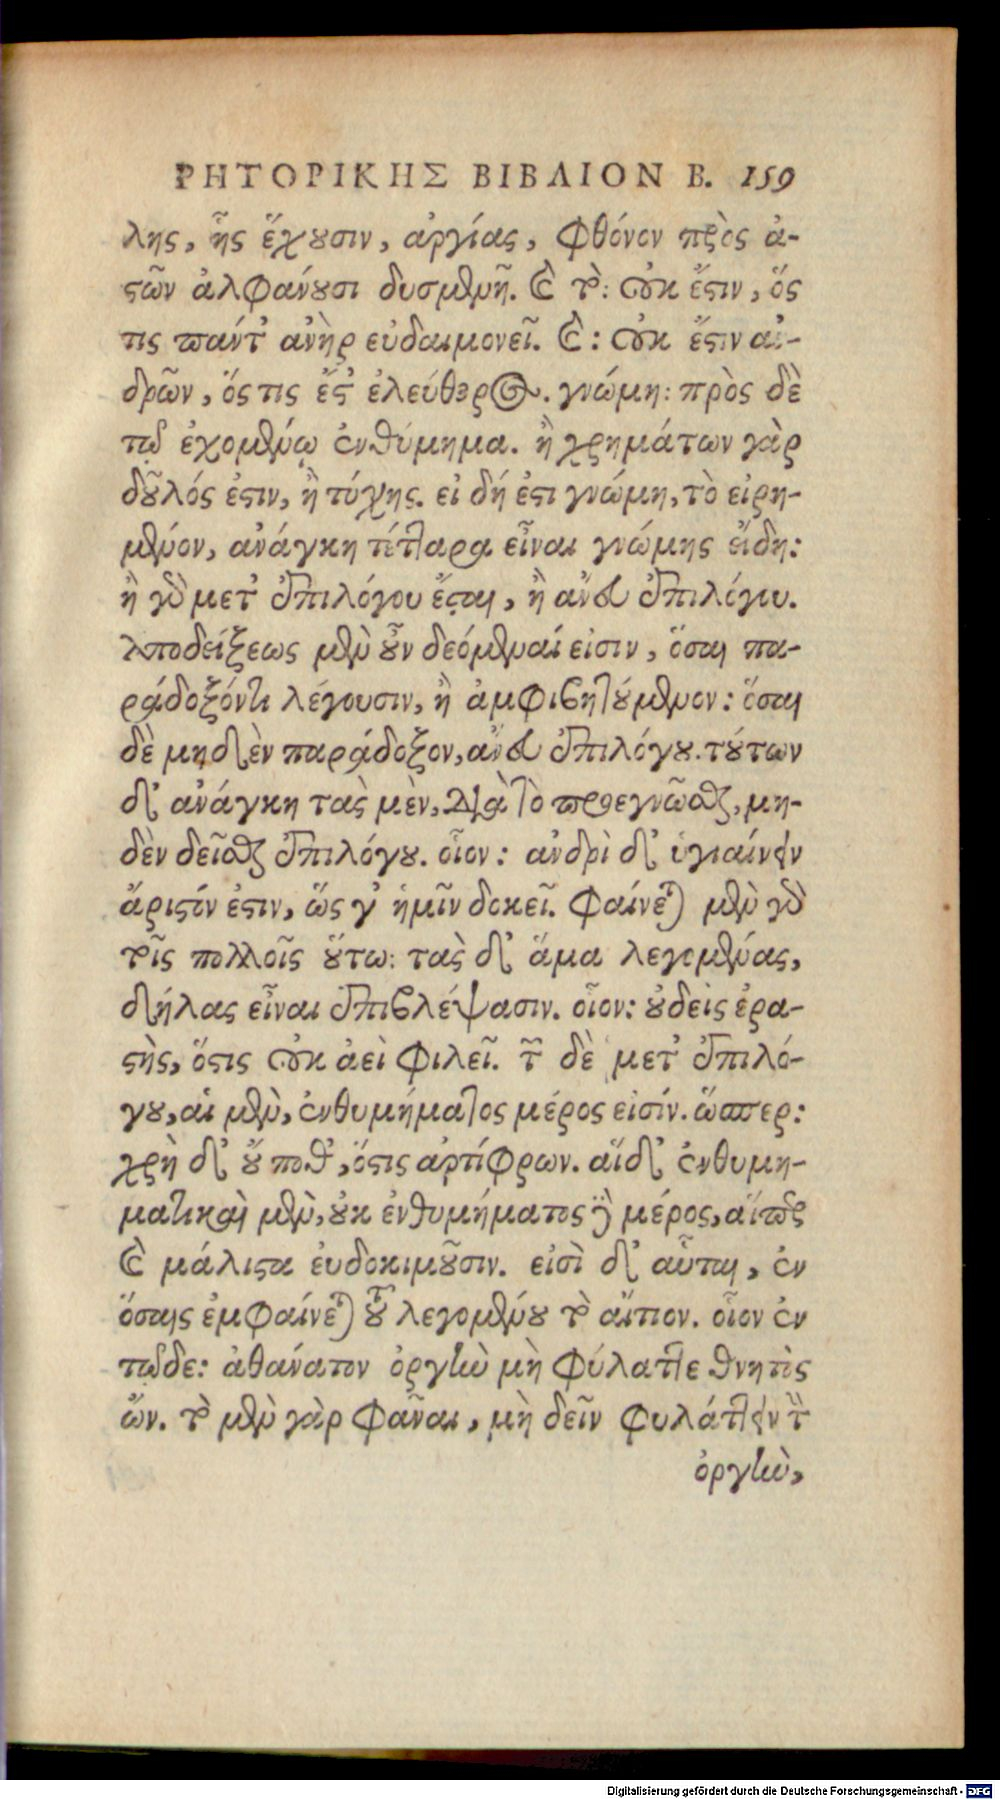 ΡΗΤΟΡΙΚΗΣ ΒΙΒΛΙΟΝ Β. 159
λης, ἧς ἔχουσιν, ἀργίας, φθόνον πρὸς ἀ-
στῶν ἀλφάνουσι δυσμενῆ. καὶ τό: οὐκ ἔστιν, ὅς
τις πάντ' ἀνὴρ εὐδαιμονεῖ. καί: οὐκ ἔστιν ἀν-
δρῶν, ὅς τις ἔστ' ἐλεύθερος. γνώμη: πρὸς δὲ
τῷ ἐχομένῳ ἐνθύμημα. ἢ χρημάτων γὰρ
δοῦλός ἐστιν, ἢ τύχης. εἰ δή ἐστι γνώμη, τὸ εἰρη-
μένον, ἀνάγκη τέτταρα εἶναι γνώμης εἴδη:
ἢ γὰρ μετ' ἐπιλόγου ἔσται, ἢ ἄνευ ἐπιλόγου.
ἀποδείξεως μὲν οὖν δεόμεναί εἰσιν, ὅσαι πα-
ράδοξόν τι λέγουσιν, ἢ ἀμφισβητούμενον: ὅσαι
δὲ μηδὲν παράδοξον, ἄνευ ἐπιλόγου. τούτων
δ' ἀνάγκη τὰς μὲν, διὰ τὸ προεγνῶσθαι, μη-
δὲν δεῖσθαι ἐπιλόγου. οἷον: ἀνδρὶ δ' ὑγιαίνειν
ἄριστόν ἐστιν, ὥς γ' ἡμῖν δοκεῖ. φαίνεται μὲν γὰρ
τοῖς πολλοῖς οὕτω: τὰς δ' ἅμα λεγομένας,
δήλας εἶναι ἐπιβλέψασιν. οἷον: οὐδεὶς ἐρα-
στὴς, ὅστις οὐκ ἀεὶ φιλεῖ. τῶν δὲ μετ' ἐπιλό-
γου, αἱ μὲν, ἐνθυμήματος μέρος εἰσίν. ὥσπερ:
χρὴ δ' οὔ ποθ', ὅστις ἀρτίφρων. αἵ δ' ἐνθυμη-
ματικαὶ μὲν, οὐκ ἐνθυμήματος δὲ μέρος, αἵπερ
καὶ μάλιστα εὐδοκιμοῦσιν. εἰσὶ δ' αὗται, ἐν
ὅσαις ἐμφαίνεται τοῦ λεγομένου τὸ αἴτιον. οἷον ἐν
τῷδε: ἀθάνατον ὀργὴν μὴ φύλαττε θνητὸς
ὤν. τὸ μὲν γὰρ φᾶναι, μὴ δεῖν φυλάττειν τὴν
ὀργὴν,
Digitalisierung gefördert durch die Deutsche Forschungsgemeinschaft - DFG